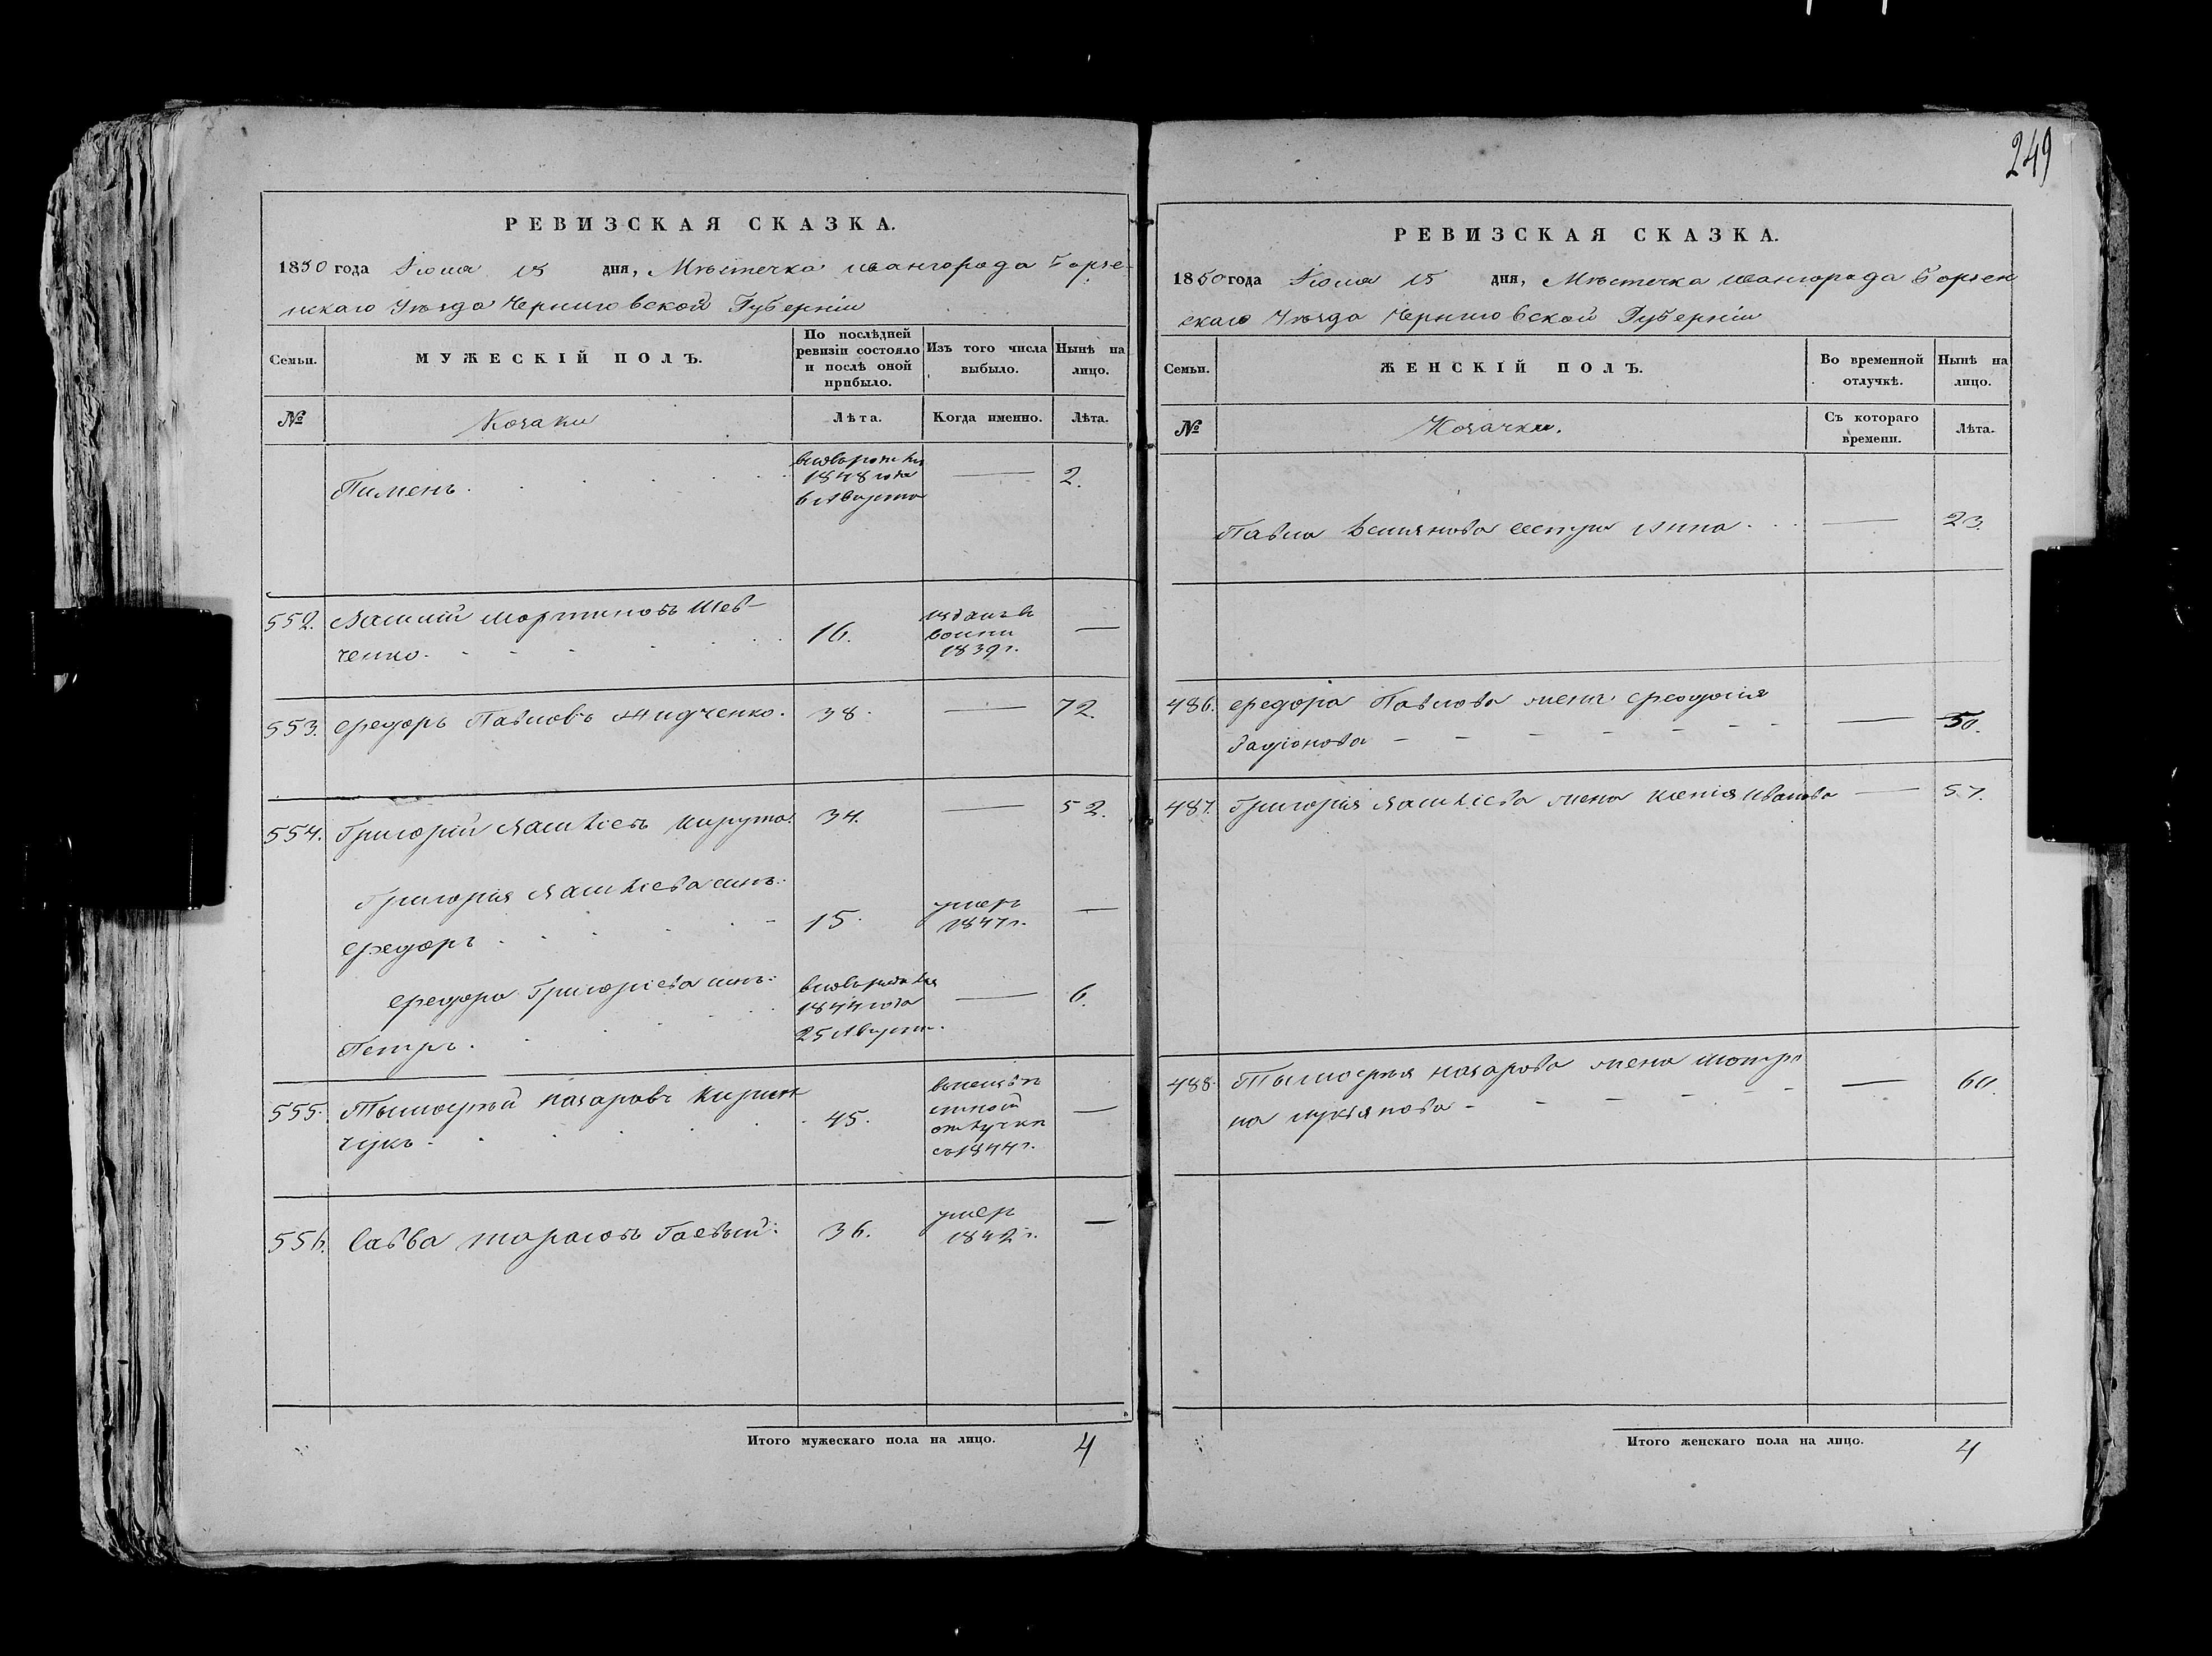 249
РЕВИЗСКАЯ СКАЗКА.
1850 года Іюля 15 дня, Мѣстечка Ивангорода Борзе-
нскаго Уѣзда Черниговской Губерніи
Семьи.
МУЖЕСКІЙ ПОЛЪ.
По послѣдней ревизіи состояло и послѣ оной прибыло.
Изъ того числа выбыло.
Нынѣ на лицо.
№
Козаки
Лѣта.
Когда именно.
Лѣта.
Пименъ. 1848 года 6 Августа — 2.
552. Мартиновъ Шев-
ченко. 16. 1839 г. —
553. Федоръ Павловъ 38. — 72.
554. Григорій 34. — 52.
Григорія сынъ:
Федоръ 15. умеръ 1847 г. —
Федора Григоріева сынъ:
Петръ. 1844 года 25 Августа. — 6.
555. Тымофѣй Назаровъ
чукъ. 45. отлучки съ 1844 г. —
556. Савва Тарасовъ Гаевый. 36. умеръ 1842 г. —
Итого мужескаго пола на лицо. 4
РЕВИЗСКАЯ СКАЗКА.
1850 года Іюля 15 дня, Мѣстечка Ивангорода Борзен
скаго Уѣзда Черниговской Губерніи
Семьи.
ЖЕНСКІЙ ПОЛЪ.
Во временной отлучкѣ.
Нынѣ на лицо.
№
Козачки.
Съ котораго времени.
Лѣта.
Павла сестра Анна — 23.
486. Федора Павлова жена Феодосія
— 50.
487. Григорія жена Ксенія Иванова — 57.
488. Тымофѣя Назарова жена Мотро
на Лукьянова — 60.
Итого женскаго пола на лицо. 4